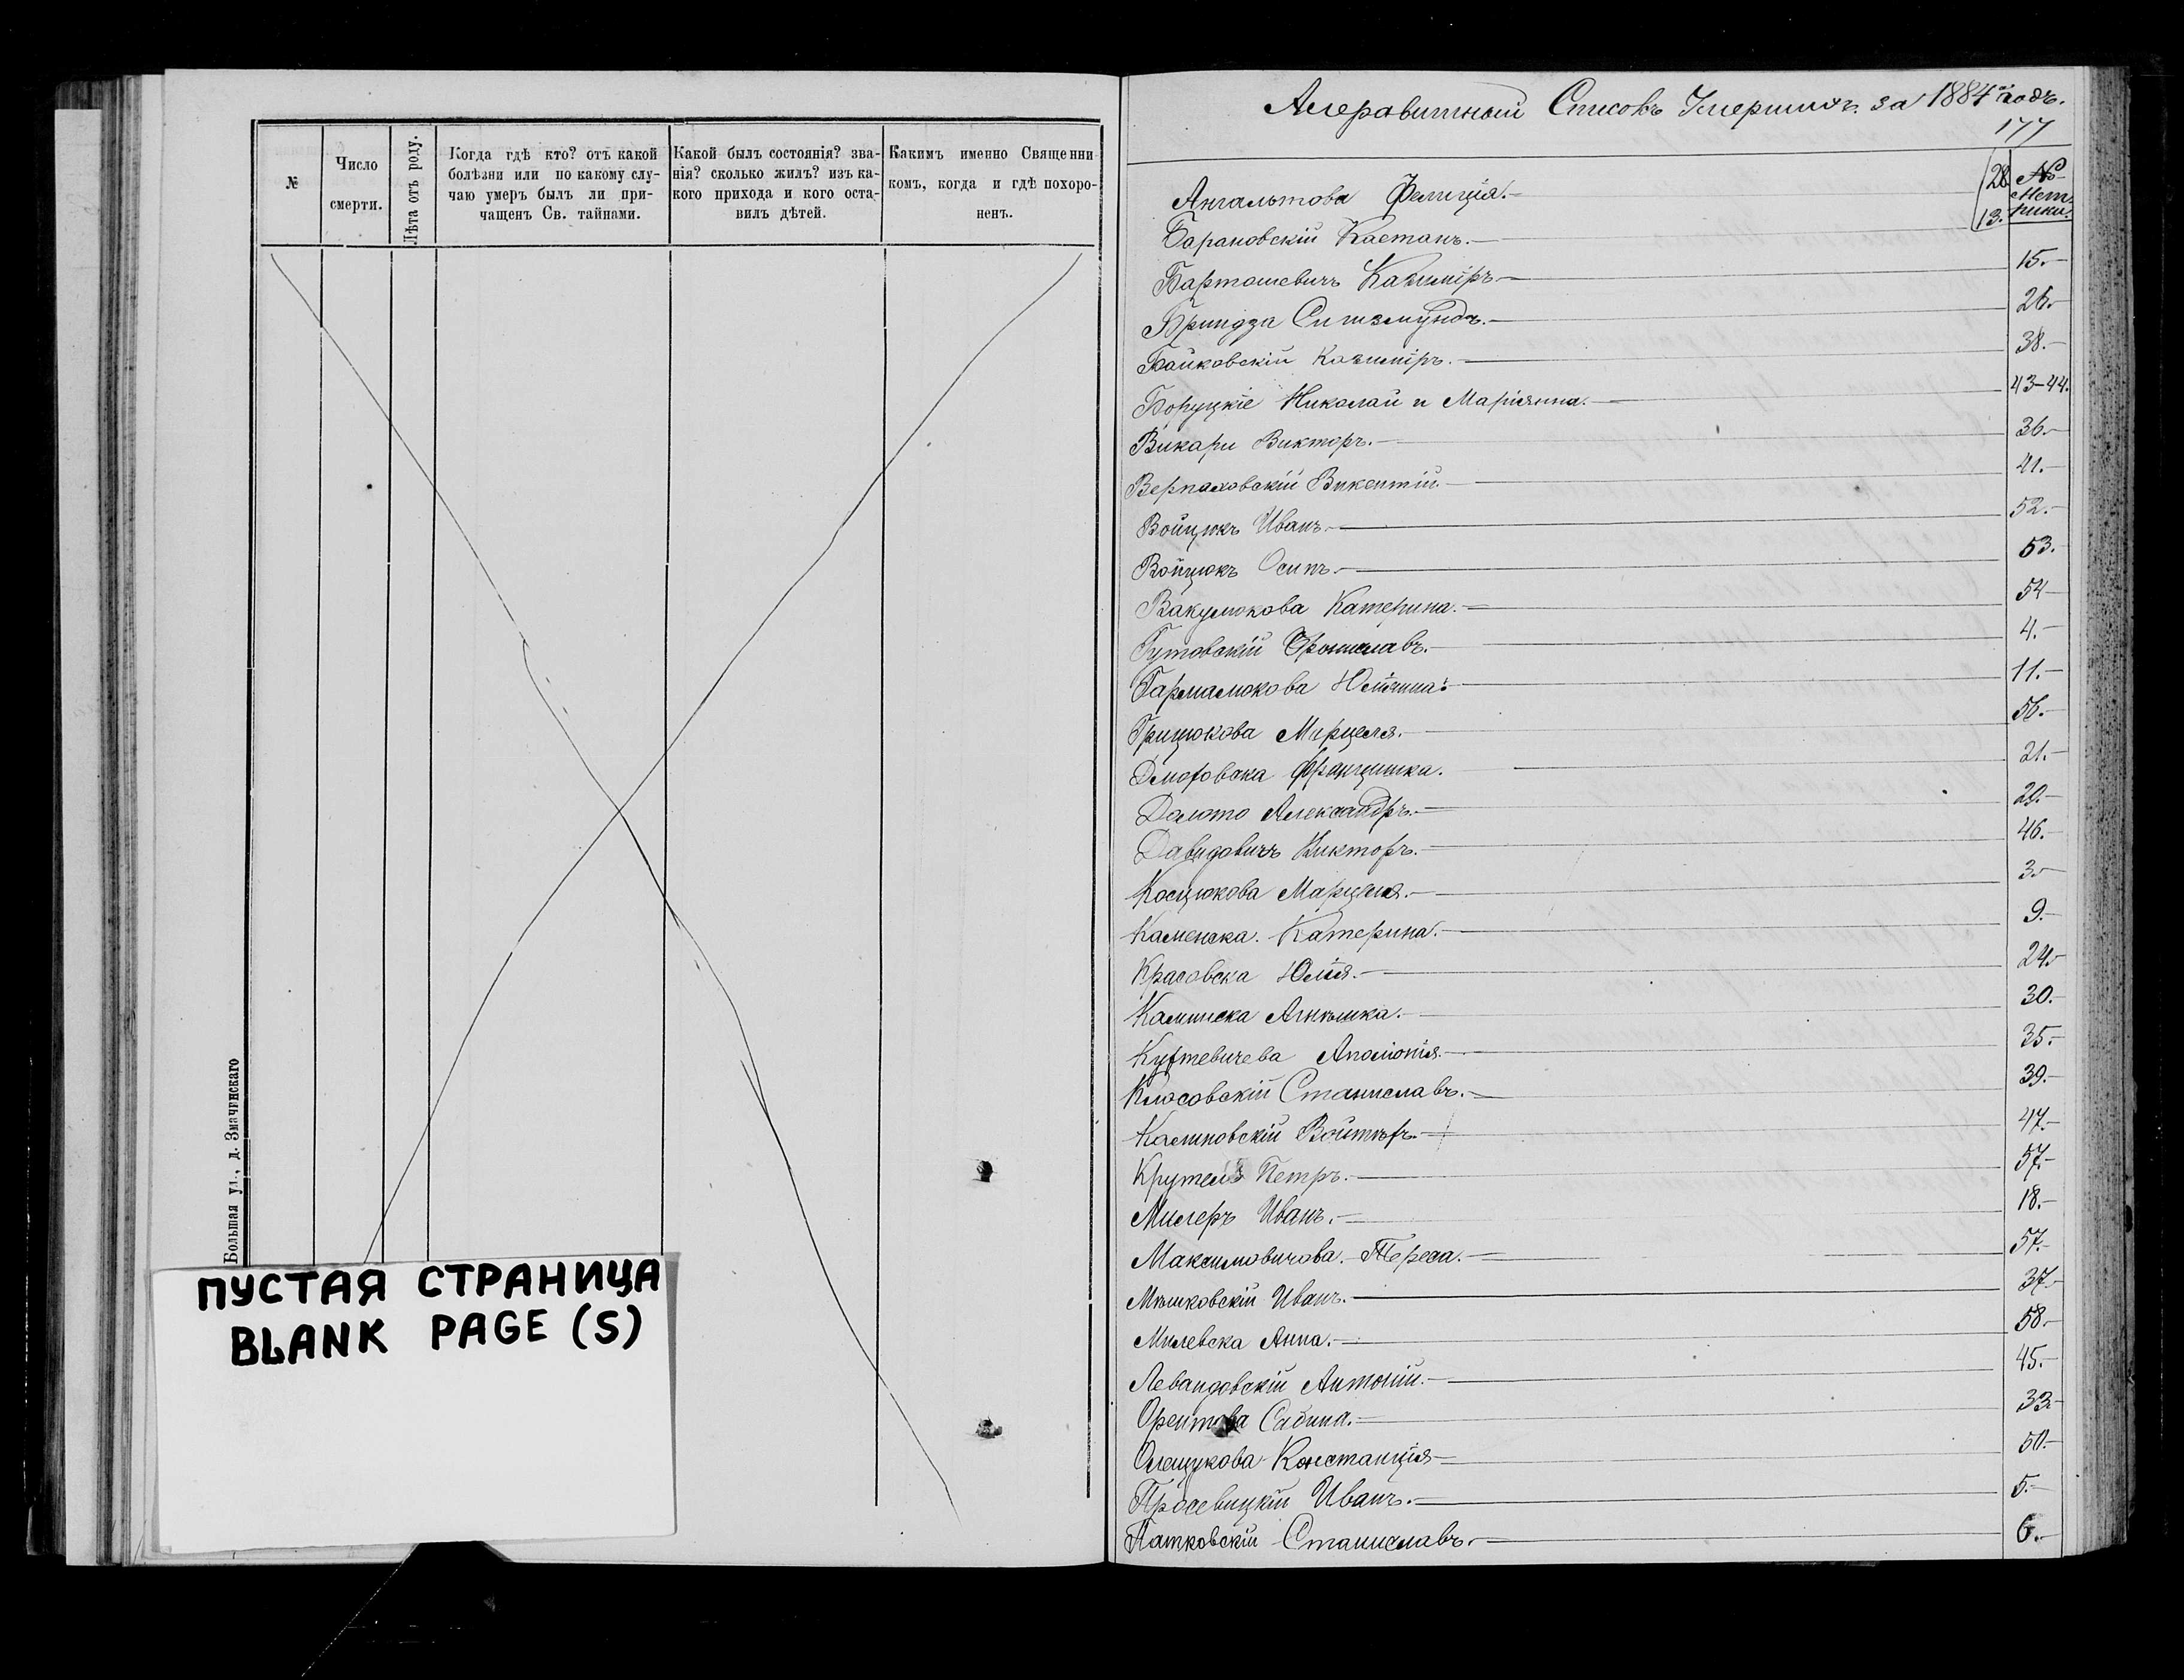 №
Число
смерти.
Лѣта отъ роду.
Когда гдѣ кто? отъ какой
болѣзни или по какому слу-
чаю умеръ былъ ли при-
чащенъ Св. тайнами.
Какой былъ состоянія? зва-
нія? сколько жилъ? изъ ка-
кого прихода и кого оста-
вилъ дѣтей.
Какимъ именно Священни
комъ, когда и гдѣ похоро-
ненъ.
Большая ул., д. Значинскаго
ПУСТАЯ СТРАНИЦА
BLANK PAGE (S)
Списокъ Умершихъ за 1884 годъ.
177
№
Мет
рики.
Ангальтова Фелиція. 28
Барановскій Каетанъ. 13.
Бартошевичъ Казиміръ 15.
Бриндза Сигизмундъ. 26.
Байковскій Казиміръ. 38.
Боруцкіе Николай и Маріянна. 43-44.
Викари Викторъ. 36.
Верпаховскій Викентій 41.
Войцюкъ Иванъ 52.
Войцюкъ Осипъ. 53.
Вакулюкова Катерина. 54
Гутовскій Брониславъ. 4.
Гармалюкова 11.
Грицюкова Марцеля. 56.
Францишка. 21.
Долото Александръ. 29.
Давидовичъ Викторъ. 46.
Косцюкова Марцеля. 3.
Каменска. Катерина. 9.
Красовска Юлія. 24.
Каминска Агнѣшка. 30.
Куртевичева Аполіонія. 35.
Клосовскій Станиславъ. 39.
Калиновскій 47.
Крутель Петръ. 57.
Милеръ Иванъ. 18.
Максимовичова. Тереса. 57.
Мѣшковскій Иванъ. 37.
Милевска Анна. 58.
Левандовскій Антоній. 45.
Орентова Сабина. 33.
Олещукова Констанція 50.
Иванъ. 5.
Патковскій Станиславъ. 6.